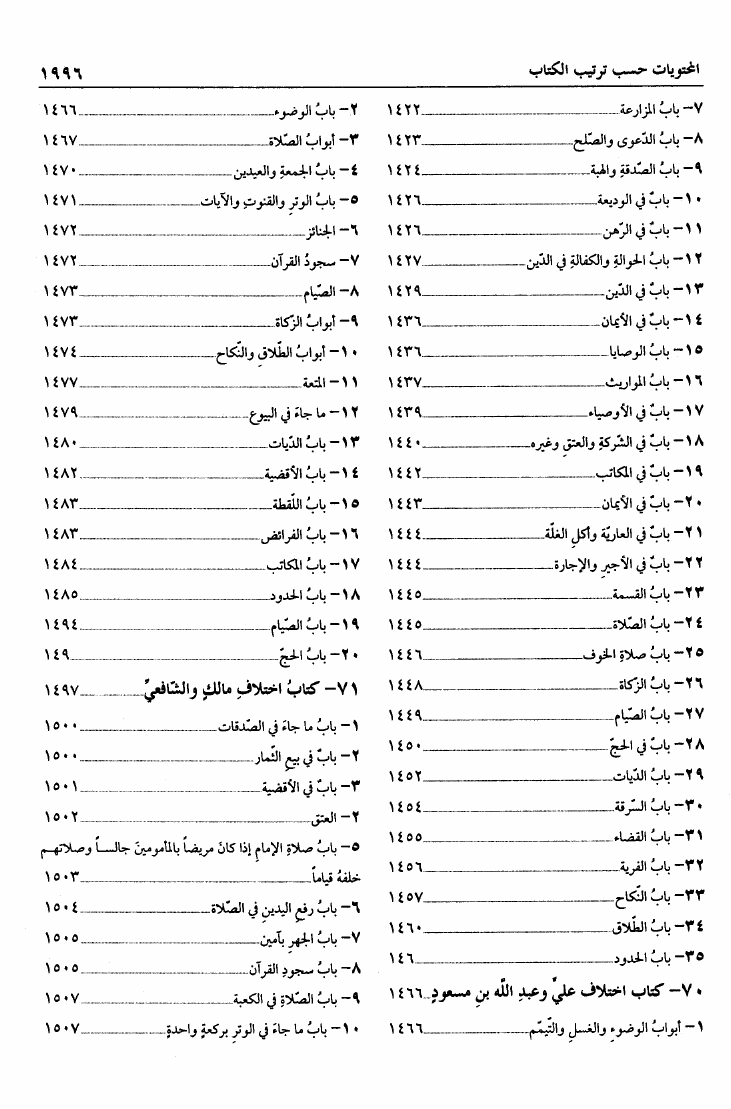 المحتويات حسب ترتيب الكتاب ١٩٩٦
٧- بابُ المزارعة ١٤٢٢
٨- بابُ الدّعوى والصّلح ١٤٢٣
٩- بابُ الصّدقةِ والهبة ١٤٢٤
١٠- بابٌ في الوديعة ١٤٢٦
١١- بابٌ في الرّهن ١٤٢٦
١٢- بابُ الحوالةِ والكفالةِ في الدّين ١٤٢٧
١٣- بابٌ في الدّين ١٤٢٩
١٤- بابٌ في الأيمان ١٤٣٦
١٥- بابُ الوصايا ١٤٣٦
١٦- بابُ المواريث ١٤٣٧
١٧- بابٌ في الأوصياء ١٤٣٩
١٨- بابٌ في الشّركةِ والعتقِ وغيره ١٤٤٠
١٩- بابٌ في المكاتب ١٤٤٢
٢٠- بابٌ في الأيمان ١٤٤٣
٢١- بابٌ في العاريّة وأكلِ الغلّة ١٤٤٤
٢٢- بابٌ في الأجيرِ والإجارة ١٤٤٤
٢٣- بابُ القسمة ١٤٤٥
٢٤- بابُ الصّلاة ١٤٤٥
٢٥- بابُ صلاةِ الخوف ١٤٤٦
٢٦- بابُ الزكاة ١٤٤٨
٢٧- بابُ الصّيام ١٤٤٩
٢٨- بابٌ في الحجّ ١٤٥٠
٢٩- بابُ الدّيات ١٤٥٢
٣٠- بابُ السّرقة ١٤٥٤
٣١- بابُ القضاء ١٤٥٥
٣٢- بابُ الفرية ١٤٥٦
٣٣- بابُ النّكاح ١٤٥٧
٣٤- بابُ الطّلاق ١٤٦٠
٣٥- بابُ الحدود ١٤٦
٧٠- كتاب اختلاف عليٍّ وعبدِ اللّه بنِ مسعودٍ ١٤٦٦
١- أبوابُ الوضوءِ والغسلِ والتّيمّم ١٤٦٦
٢- بابُ الوضوء ١٤٦٦
٣- أبوابُ الصّلاة ١٤٦٧
٤- بابُ الجمعةِ والعيدين ١٤٧٠
٥- بابُ الوترِ والقنوتِ والآيات ١٤٧١
٦- الجنائز ١٤٧٢
٧- سجودُ القرآن ١٤٧٢
٨- الصّيام ١٤٧٣
٩- أبوابُ الزّكاة ١٤٧٣
١٠- أبوابُ الطّلاقِ والنّكاح ١٤٧٤
١١- المتعة ١٤٧٧
١٢- ما جاءَ في البيوع ١٤٧٩
١٣- بابُ الدّيات ١٤٨٠
١٤- بابُ الأقضية ١٤٨٢
١٥- بابُ اللّقطة ١٤٨٣
١٦- بابُ الفرائض ١٤٨٣
١٧- بابُ المكاتب ١٤٨٤
١٨- بابُ الحدود ١٤٨٥
١٩- بابُ الصّيام ١٤٩٤
٢٠- بابُ الحجّ ١٤٩
٧١- كتابُ اختلافِ مالكٍ والشّافعيِّ ١٤٩٧
١- بابُ ما جاءَ في الصّدقات ١٥٠٠
٢- بابٌ في بيعِ الثّمار ١٥٠٠
٣- بابٌ في الأقضية ١٥٠١
٢- العتق ١٥٠٢
٥- بابُ صلاةِ الإمامِ إذا كانَ مريضاً بالمأمومينَ جالساً وصلاتهم
خلفهُ قياماً ١٥٠٣
٦- بابُ رفعِ اليدينِ في الصّلاة ١٥٠٤
٧- بابُ الجهرِ بآمين ١٥٠٥
٨- بابُ سجودِ القرآن ١٥٠٥
٩- بابُ الصّلاةِ في الكعبة ١٥٠٧
١٠- بابُ ما جاءَ في الوترِ بركعةٍ واحدةٍ ١٥٠٧